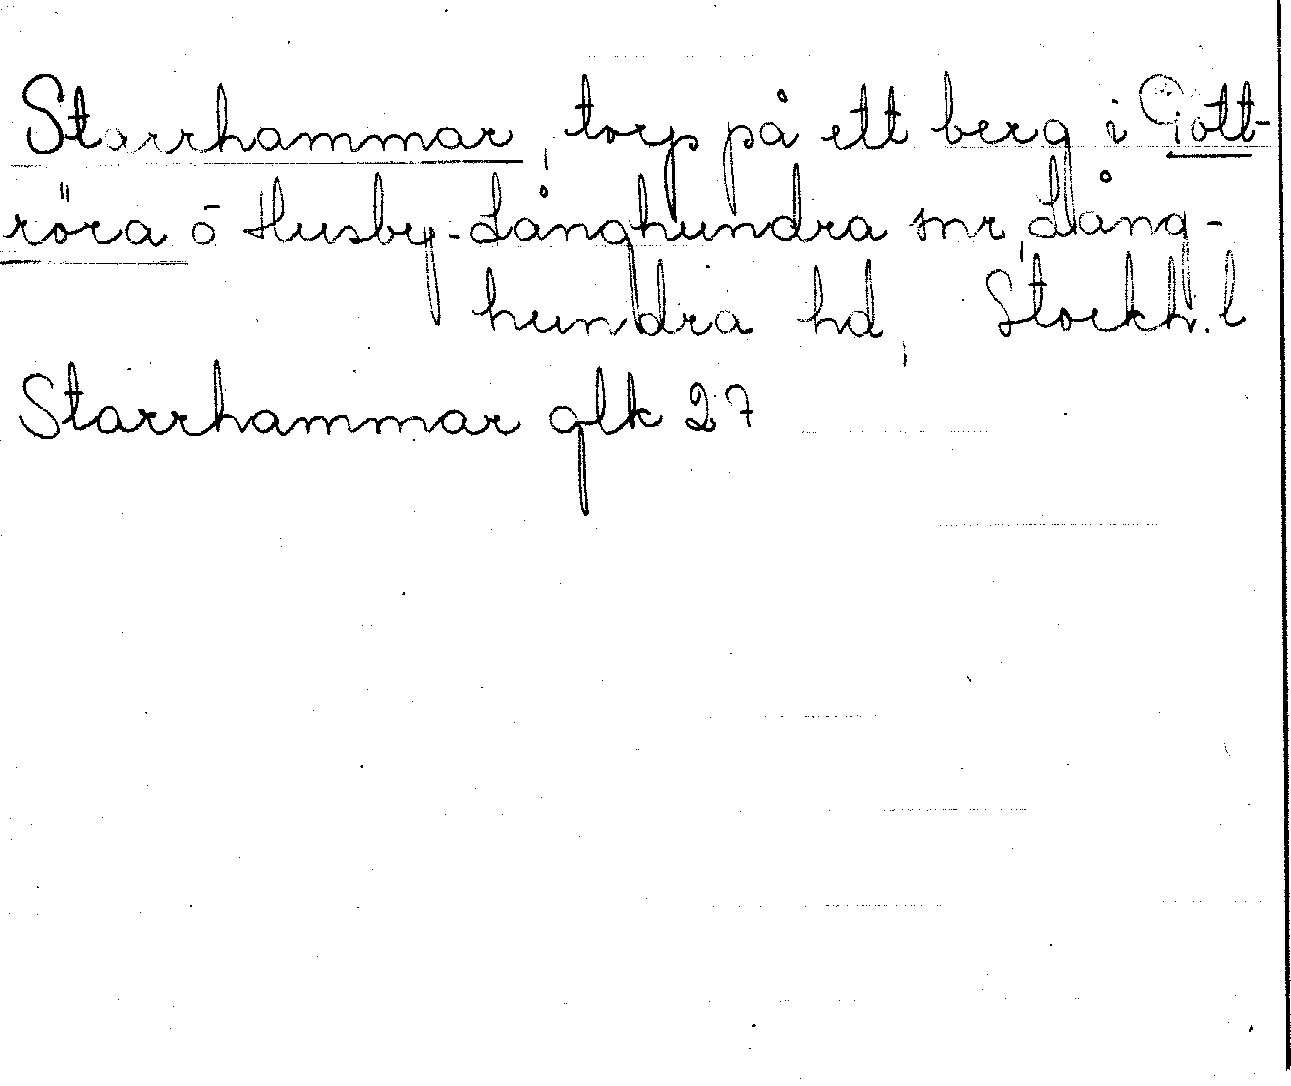 Starrhammar, torp på ett berg i Gott-
röra ō Husby-Långhundra snr, Lång-
hundra hd, Stockh. l
Starrhammar glk 27